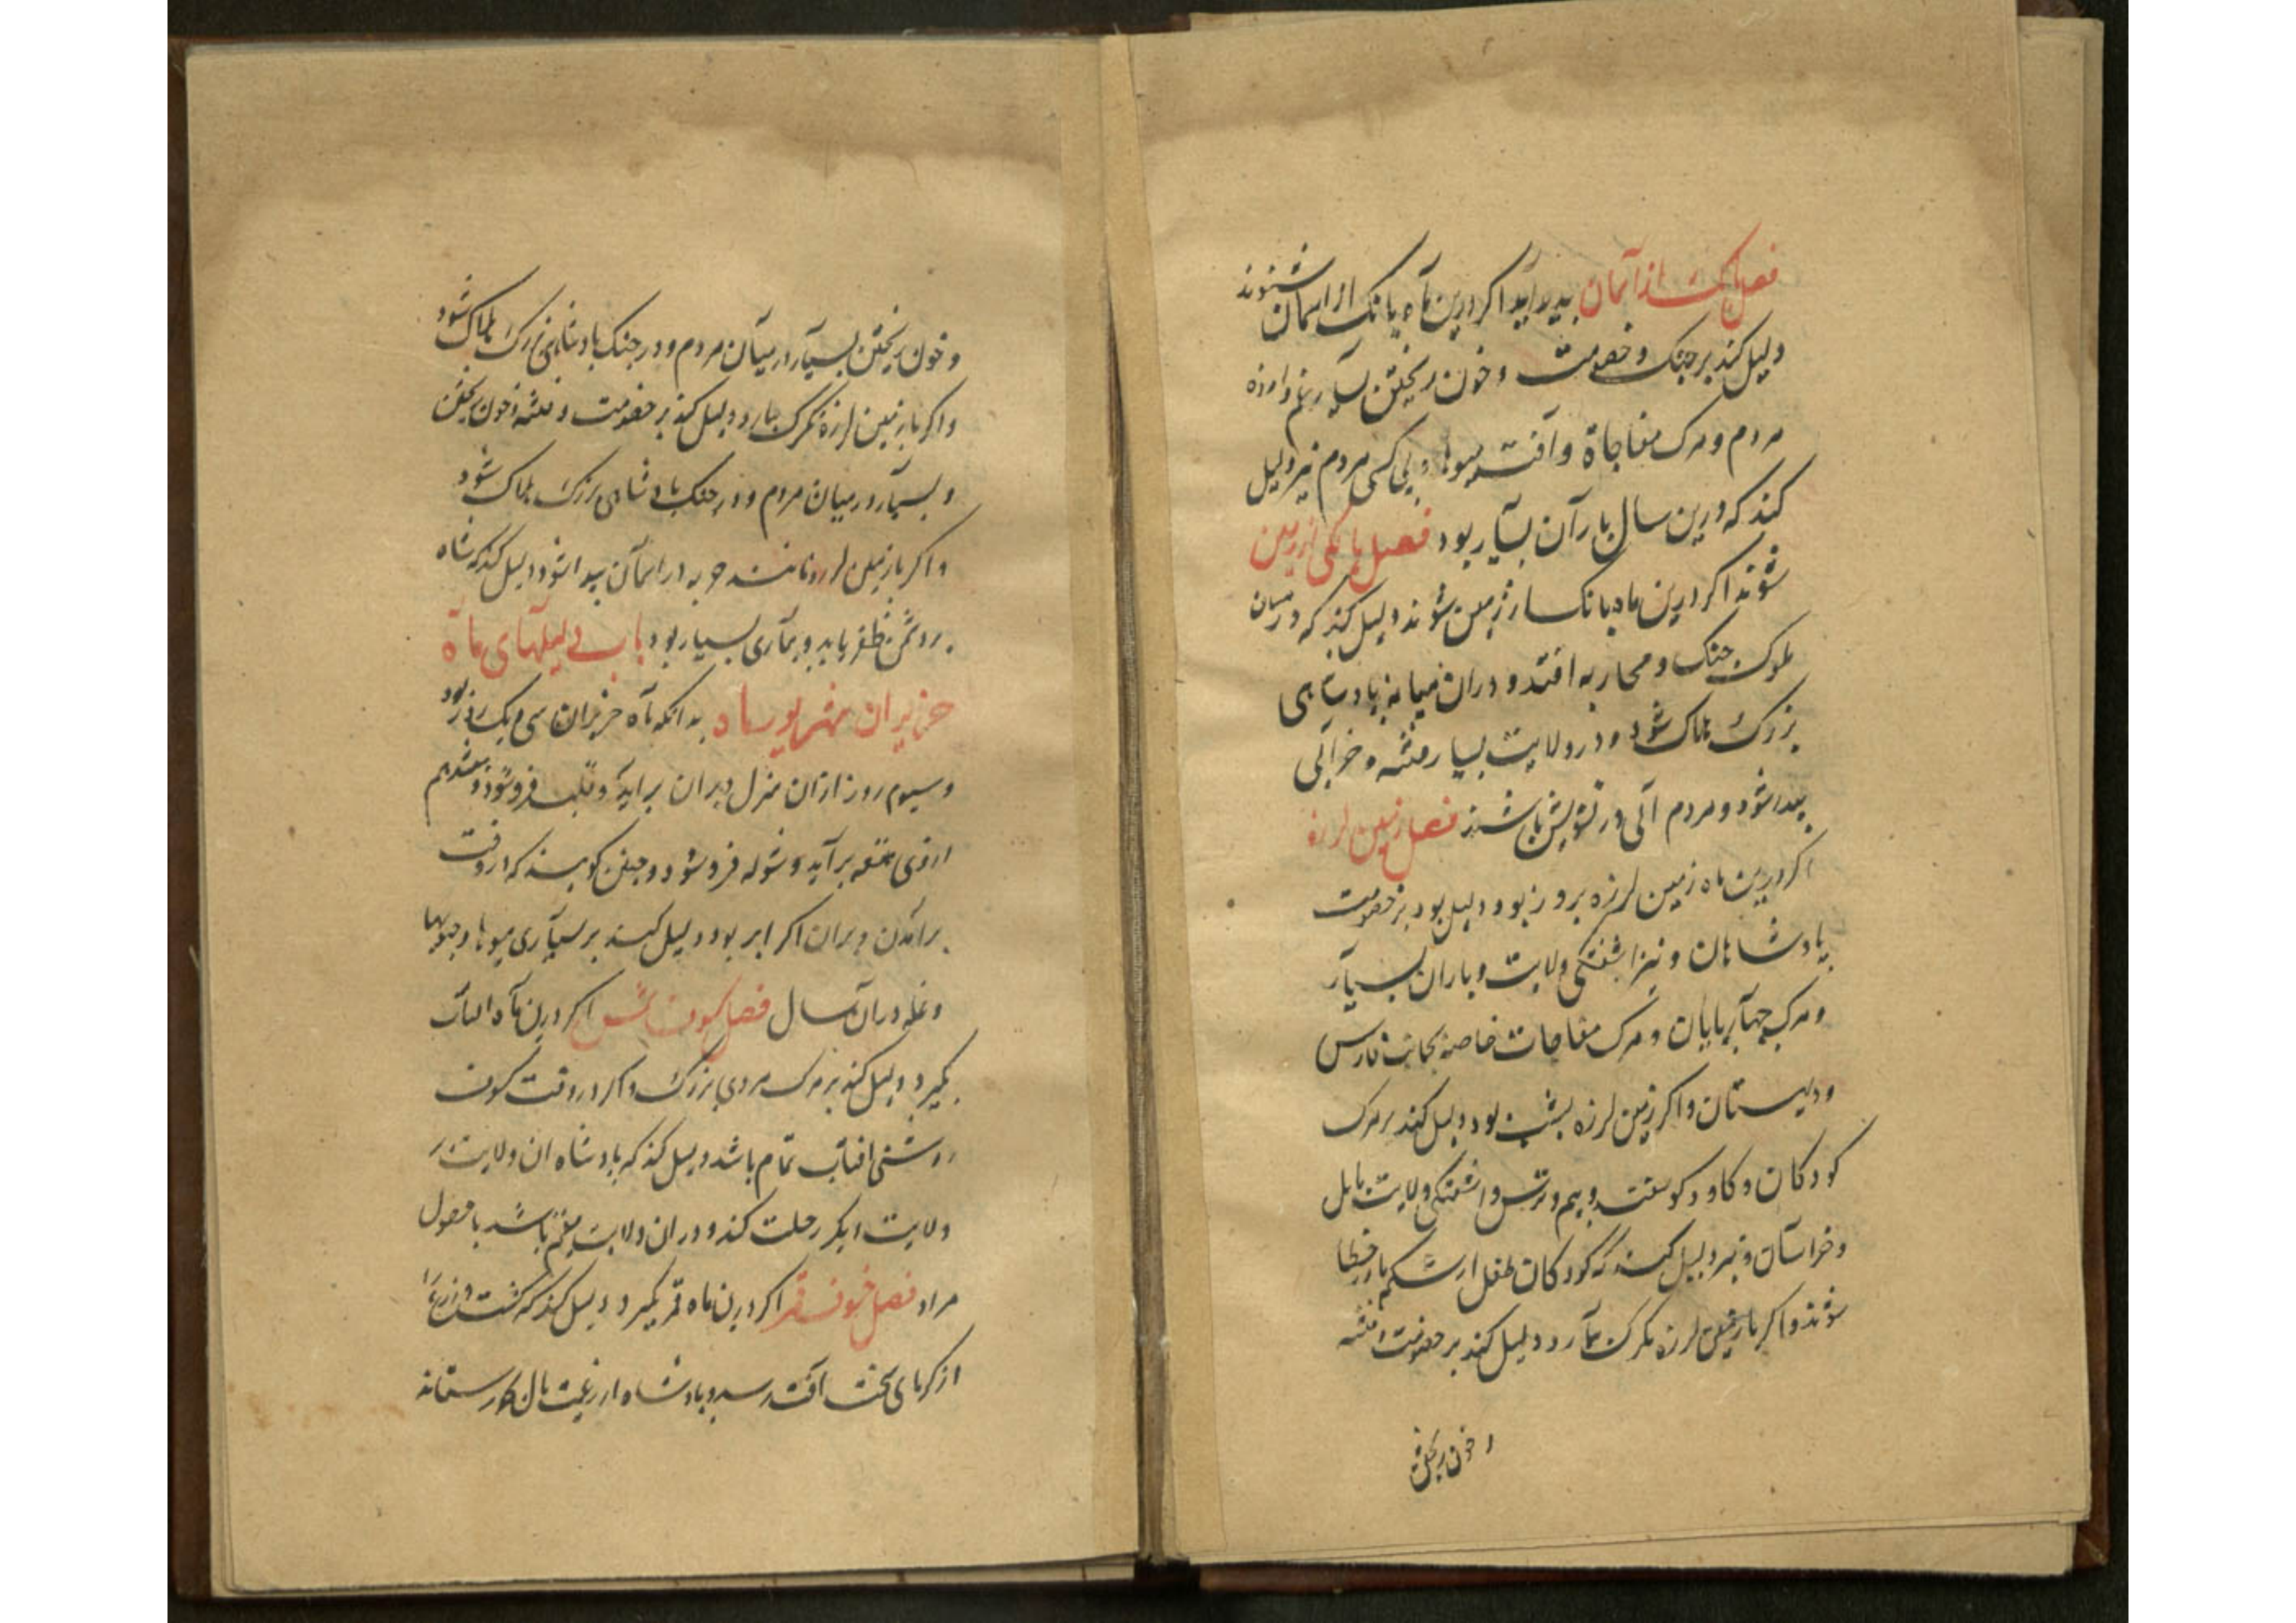 فصل بانک از آسمان پدید آید اکر درین ماه بانک از اسمان شنوند
دلیل کند بر جنک و خصومت و خون ریختن بسیار و غم و اوزه
مردم و مرک مفاجاة و آفت میوها و بی کمی مردم نیز دلیل
کند که درین سال بارآن بسیار بود فصل بانکی از زمین
شوند اکر درین ماه بانک از زمین شوند دلیل کند که در میان
ملوک جنک و محاربه افتد و دران میانه پادشاهی
بزرک هلاک شود و در ولایت بسیار فتنه و خرآبی
پیدا شود و مردم آبی در تشویش باشند فصل زمین لرزه
اکر درین ماه زمین لرزه بروز بود دلیل بود بر خصومت
پادشاهان و نیز اشفتکی ولایت و باران بسیآر
و مرک چهآرپایان و مرک مفاجات خاصه بجانب فارس
و دلیستان و اکر زمین لرزه بشب بود دلیل کند بر مرک
کودکان و کاو و کوسفند و بیم و ترس و اشفتکی ولایت بابل
و خراسآن و نیز دلیل کند که کودکان طفل از شکم مادر خطا
شوند و اکر با زمین لرزه تکرک بآرد دلیل کند بر خصومت و فتنه
و خون ریختن
و خون ریختن بسیآر در میآن مردم و در جنک پادشاهی بزرک هلاک شود
و اکر با زمین لرزه تکرک ببارد دلیل کند بر خصومت و فتنه و خون ریختن
و بسیآر در میان مردم و در جنک پادشاهی بزرک هلاک شود
و اکر با زمین لرزه مانند چوبه در اسمآن پیدا شود دلیل کند که شاه
بر دشمن ظفر یابد و بیمآری بسیار بود باب دلیلهای ماه
حزیران شهریورماه بدانکه مآه حزیران سی و یک روز بود
و سیوم روز ازان منزل دبران برآید و قلب فرو شود و هفتدهم
ازوی هقعه برآید و شوله فرو شود و چنین کویند که در وقت
برآمدن دبران اکر ابر بود دلیل کند بر بسیآری میوها و حبوبها
و غله دران سال فصل کسوف شمس اکر درین مآه افتاب
بکیرد دلیل کند بر مرک مردی بزرک و اکر در وقت کسوف
روشنی افتاب تمام باشد دلیل کند که پادشاه ان ولایت بر
ولایت دیکر رحلت کند و در ان ولایت مقیم باشد با حصول
مراد فصل خسوف قمر اکر درین ماه قمر بکیرد دلیل کند که کشت و زرع را
از کرمای سخت آفت رسد و پادشاه از رعیت مال ستاند